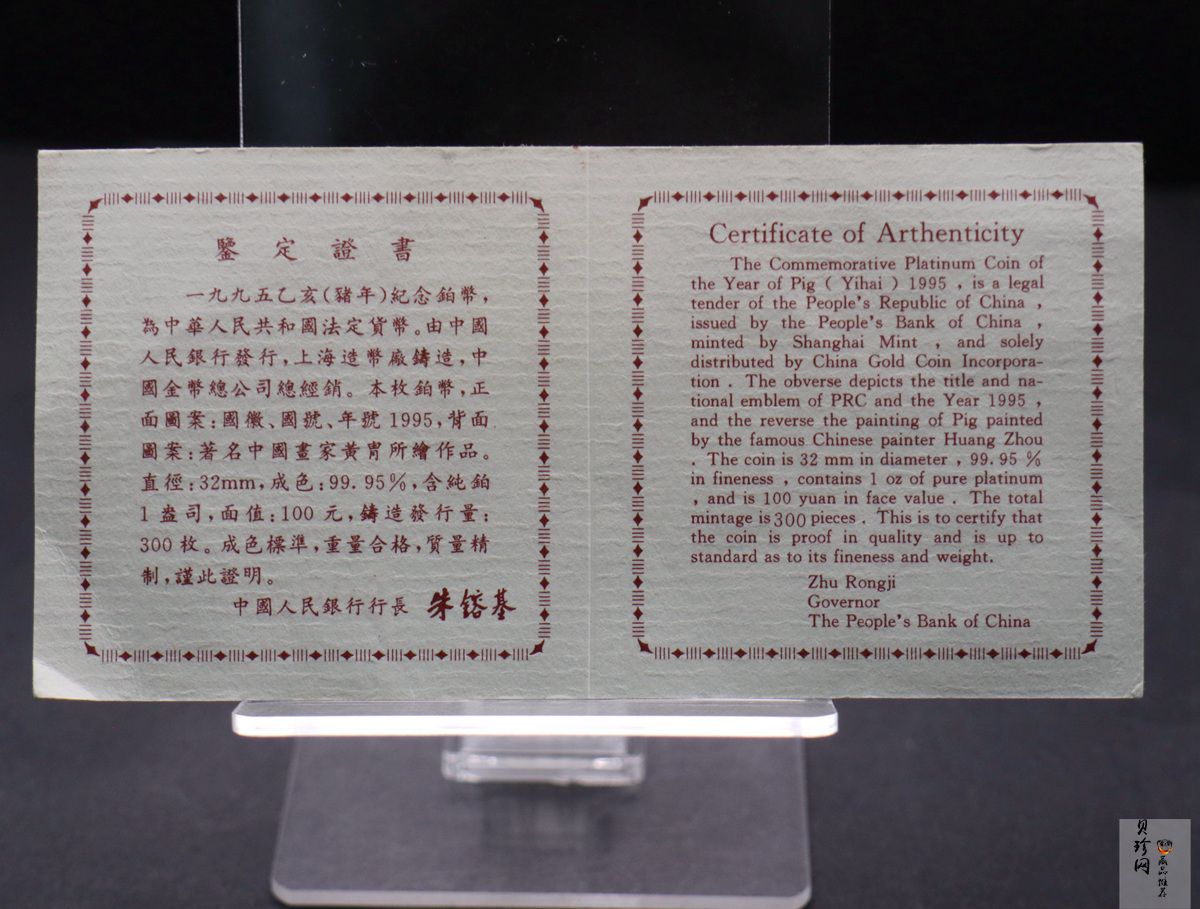 鑒定證書
一九九五乙亥(豬年)紀念鉑幣,
為中華人民共和國法定貨幣。由中國
人民銀行發行,上海造幣廠鑄造,中
國金幣總公司總經銷。本枚鉑幣,正
面圖案:國徽、國號、年號1995,背面
圖案:著名中國畫家黃胄所繪作品。
直徑:32mm,成色:99.95%,含純鉑
1盎司,面值:100元,鑄造發行量:
300枚。成色標準,重量合格,質量精
制,謹此證明。
中國人民銀行行長 朱鎔基
Certificate of Arthenticity
The Commemorative Platinum Coin of
the Year of Pig ( Yihai ) 1995 , is a legal
tender of the People's Republic of China ,
issued by the People's Bank of China ,
minted by Shanghai Mint , and solely
distributed by China Gold Coin Incorpora-
tion . The obverse depicts the title and na-
tional emblem of PRC and the Year 1995 ,
and the reverse the painting of Pig painted
by the famous Chinese painter Huang Zhou
. The coin is 32 mm in diameter , 99.95 %
in fineness , contains 1 oz of pure platinum
, and is 100 yuan in face value . The total
mintage is 300 pieces . This is to certify that
the coin is proof in quality and is up to
standard as to its fineness and weight.
Zhu Rongji
Governor
The People's Bank of China
贝珍网
藏品推荐